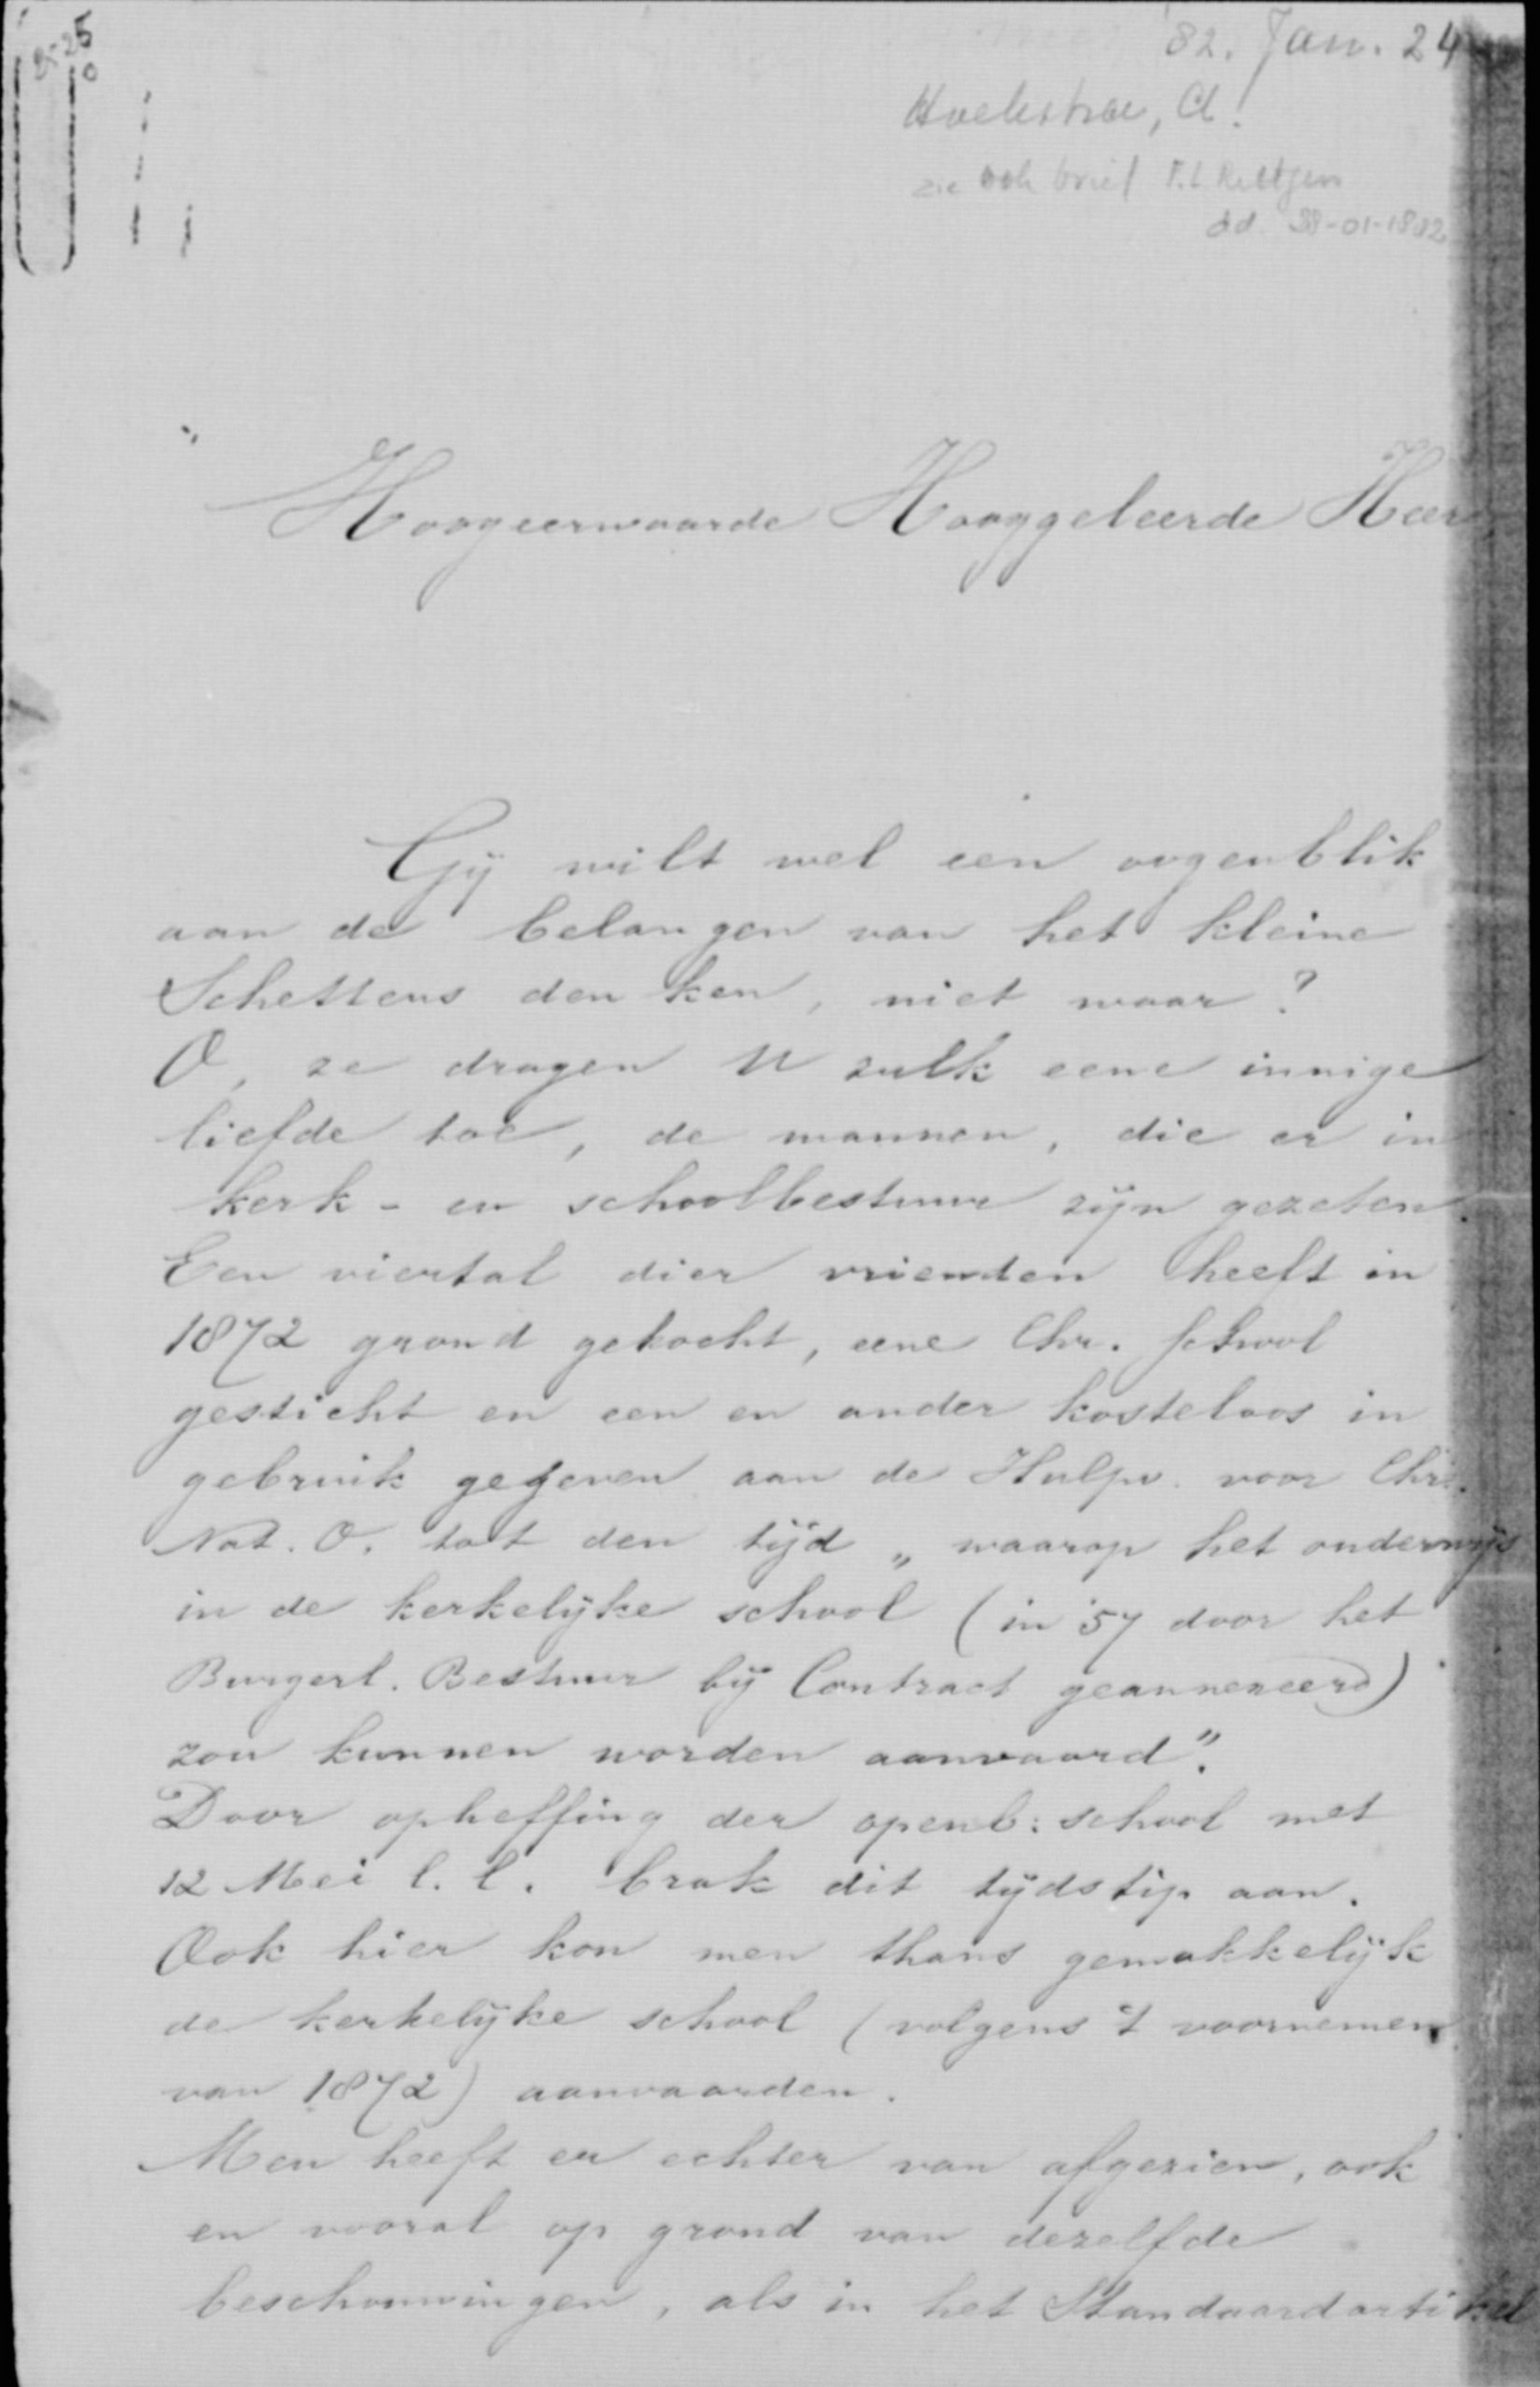 '82. Jan. 24
Hoekstra, Cl.
zie ook brief F.L. Rutgers
dd. 28-01-1882
Hoogeerwaarde Hooggeleerde Heer
Gij wilt wel een oogenblik
aan de belangen van het kleine
Schettens denken, niet waar?
O, ze dragen U zulk eene innige
liefde toe, de mannen, die er in
kerk- en schoolbestuur zijn gezeten.
Een viertal dier vrienden heeft in
1872 grond gekocht, eene Chr. School
gesticht en een en ander kosteloos in
gebruik gegeven aan de Hulpv. voor Chr.
Nat. O. tot den tijd „ waarop het onderwijs
in de kerkelijke school (in '57 door het
Burgerl. Bestuur bij Contract geannexeerd)
zou kunnen worden aanvaard".
Door opheffing der openb: school met
12 Mei l.l. brak dit tijdstip aan.
Ook hier kon men thans gemakkelijk
de kerkelijke school (volgens 't voornemen
van 1872) aanvaarden.
Men heeft er echter van afgezien, ook
en vooral op grond van dezelfde
beschouwingen, als in het Standaardartikel